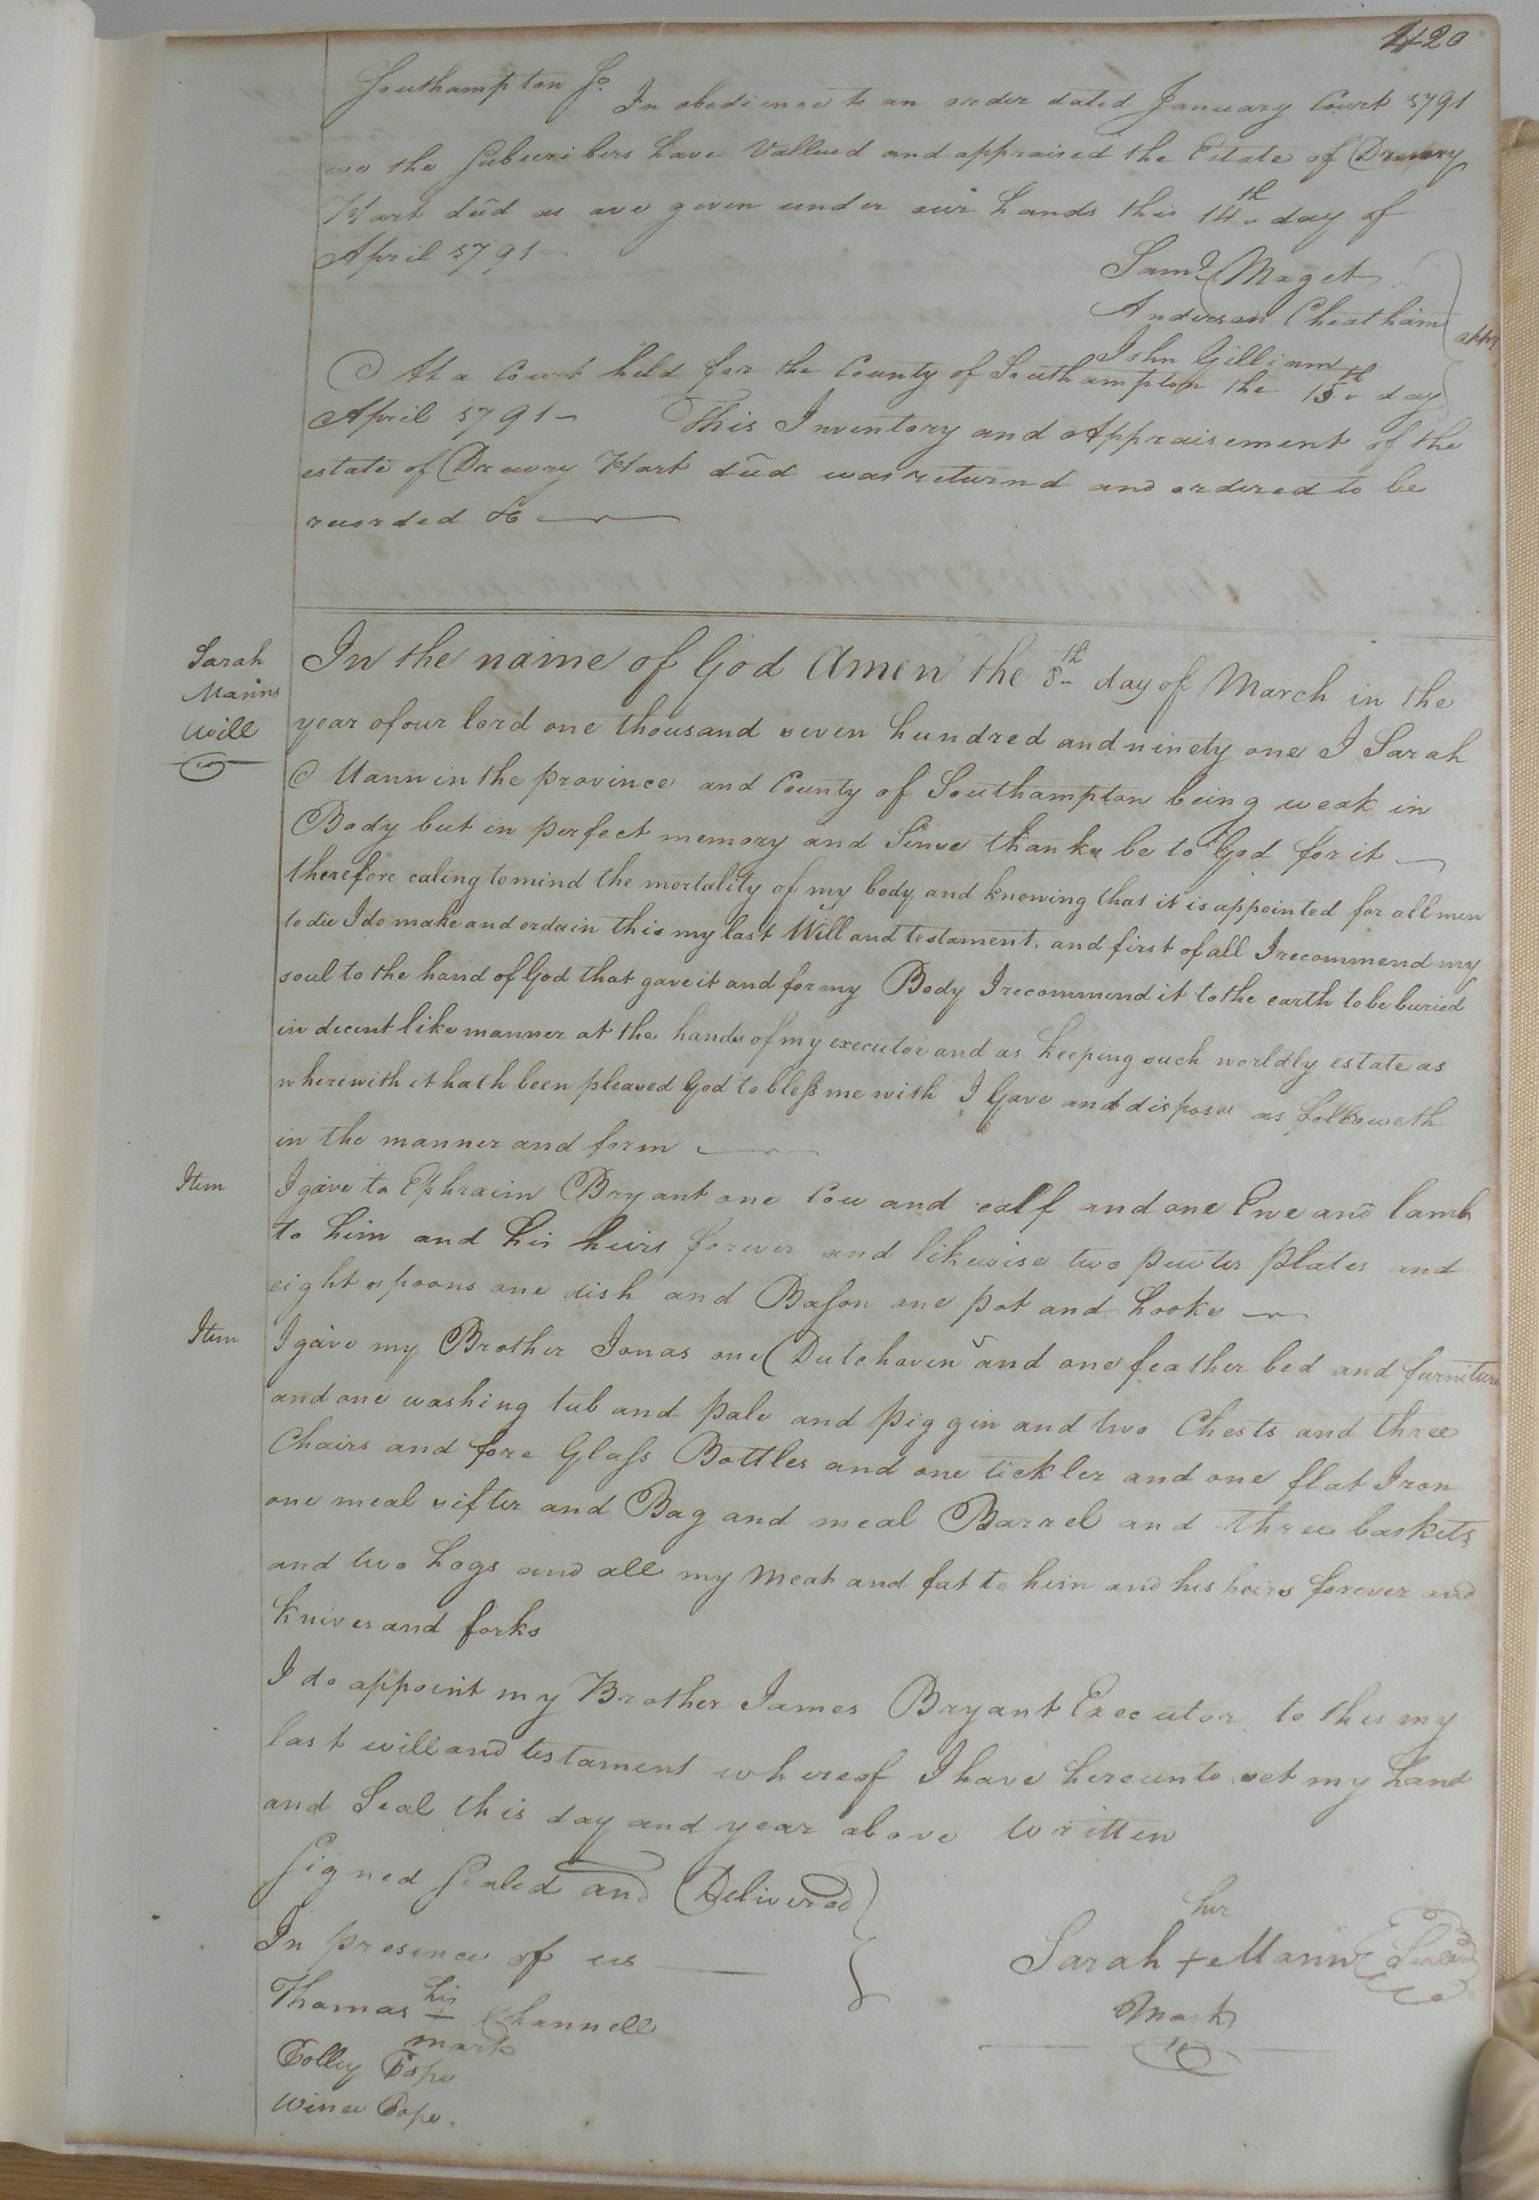 420
Southampton Sc. In obedience to an order dated January Court 1791
we the Subscribers have Vallued and appraised the Estate of Drewry
Hart dećd as are given under our hands this 14th day of
April 1791
Saml Maget
Anderson Cheatham
John Gilliam
appr
At a Court held for the County of Southampton the 15th day
April 1791 - This Inventory and Appraisement of the
estate of Drewry Hart dećd was returnd and ordered to be
recorded &c
Sarah
Manns
Will
In the name of God Amen the 8th day of March in the
year of our lord one thousand seven hundred and ninety one I Sarah
Mann in the province and County of Southampton being weak in
Body but in perfect memory and Sinse thanks be to God for it
therefore caling to mind the mortality of my body and knowing that it is appointed for all men
to die I do make and ordain this my last Will and testament, and first of all I recommend my
soul to the hand of God that gave it and for my Body I recommend it to the earth to be buried
in decent like manner at the hands of my executor and as keeping such worldly estate as
wherewith it hath been pleased God to bless me with I Gave and dispose as followeth
in the manner and form
Item I give to Ephraim Bryant one Cow and calf and one Ewe and lamb
to him and his heirs forever and likewise two pewter plates and
eight spoons one dish and Bason one pot and hooks
Item I give my Brother Jonas one Dutchoven and one feather bed and furniture
and one washing tub and pale and piggin and two Chests and three
Chairs and fore Glass Bottles and one tickler and one flat Iron
one meal sifter and Bag and meal Barrel and three baskets
and two hogs and all my meat and fat to him and his heirs forever and
knives and forks
I do appoint my Brother James Bryant Executor to this my
last will and testament whereof I have hereunto set my hand
and Seal this day and year above written
Signed Sealed and Delivered
In presence of us
her
Sarah + Mann Seal
Mark
his
Thomas + Channell
mark
Polley Pope
Winea Pope